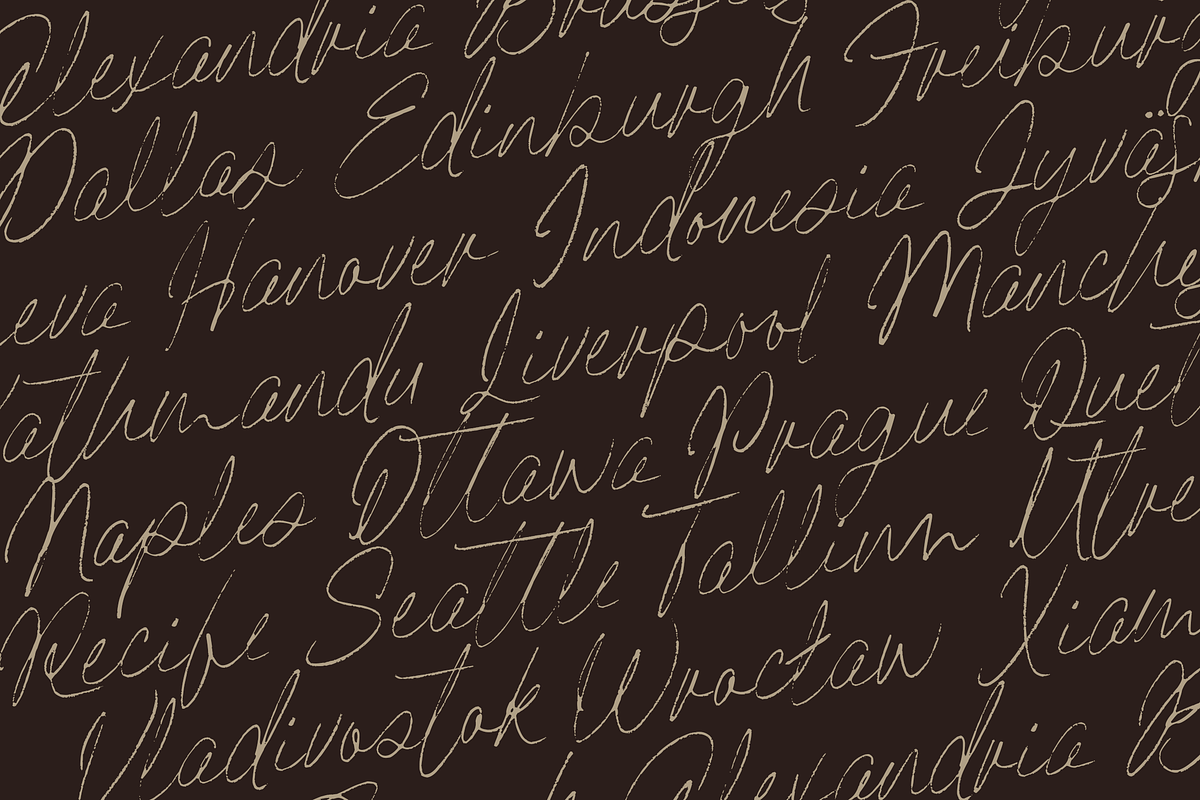 Alexandria Brussels
Dallas Edinburgh Freiburg
eva Hanover Indonesia Jyväs
athmandu Liverpool Manches
Naples Ottawa Prague Quet
Recife Seattle Tallinn Utre
Vladivostok Wrocław Xiam
Alexandria B